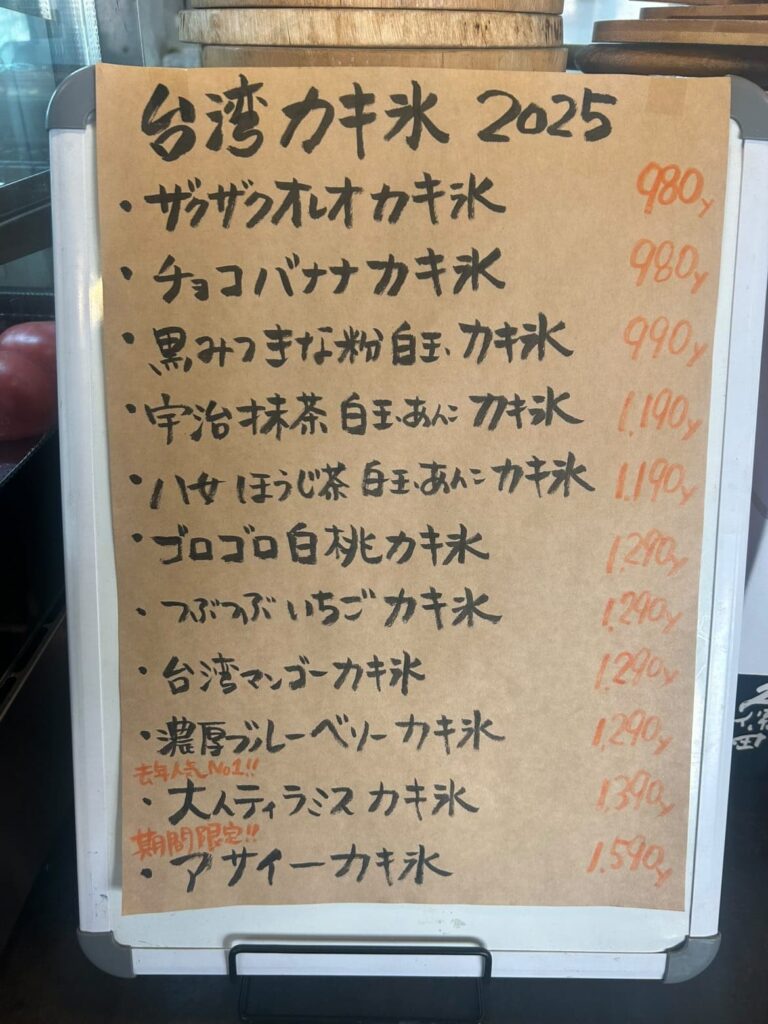 台湾カキ氷 2025
・ザクザクオレオカキ氷 980y
・チョコバナナカキ氷 980y
・黒みつきな粉白玉カキ氷 990y
・宇治抹茶白玉あんこカキ氷 1,190y
・八女ほうじ茶白玉あんこカキ氷 1,190y
・ゴロゴロ白桃カキ氷 1,290y
・つぶつぶいちごカキ氷 1,290y
・台湾マンゴーカキ氷 1,290y
・濃厚ブルーベリーカキ氷 1,290y
去年人気No1!!
・大人ティラミスカキ氷 1,390y
期間限定!!
・アサイーカキ氷 1,590y